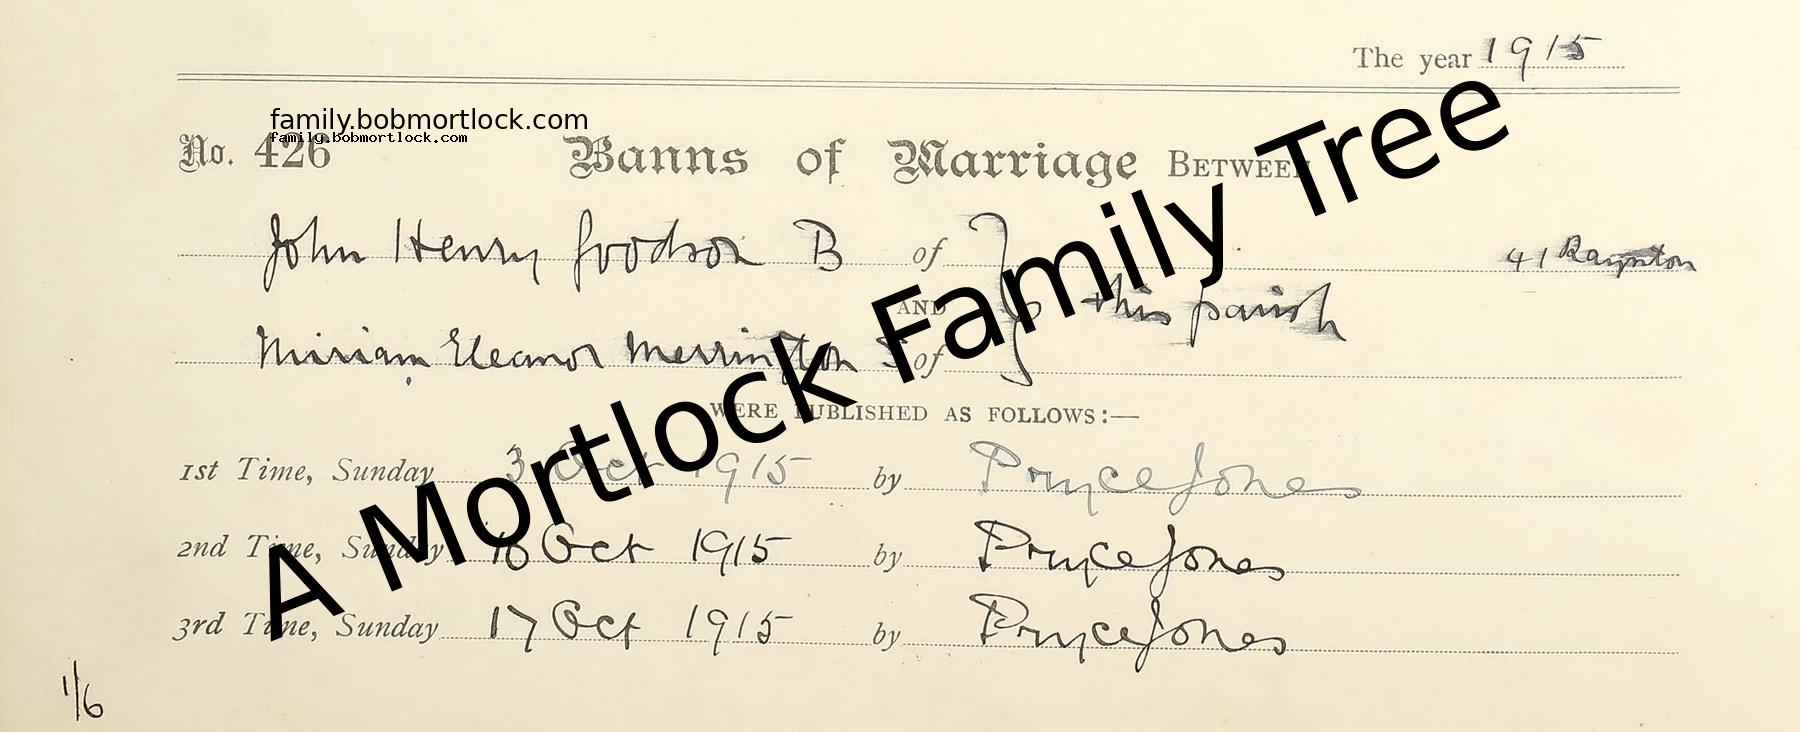 The year 1915
family.bobmortlock.com
family.bobmortlock.com
No. 426 Banns of Marriage BETWEEN
John Henry Goodson B of
41 Raynton
AND this parish
Miriam Eleanor Merrington S of
WERE PUBLISHED AS FOLLOWS:—
1st Time, Sunday 3 Oct 1915 by Pryce Jones
2nd Time, Sunday 10 Oct 1915 by Pryce Jones
3rd Time, Sunday 17 Oct 1915 by Pryce Jones
1/6
A Mortlock Family Tree